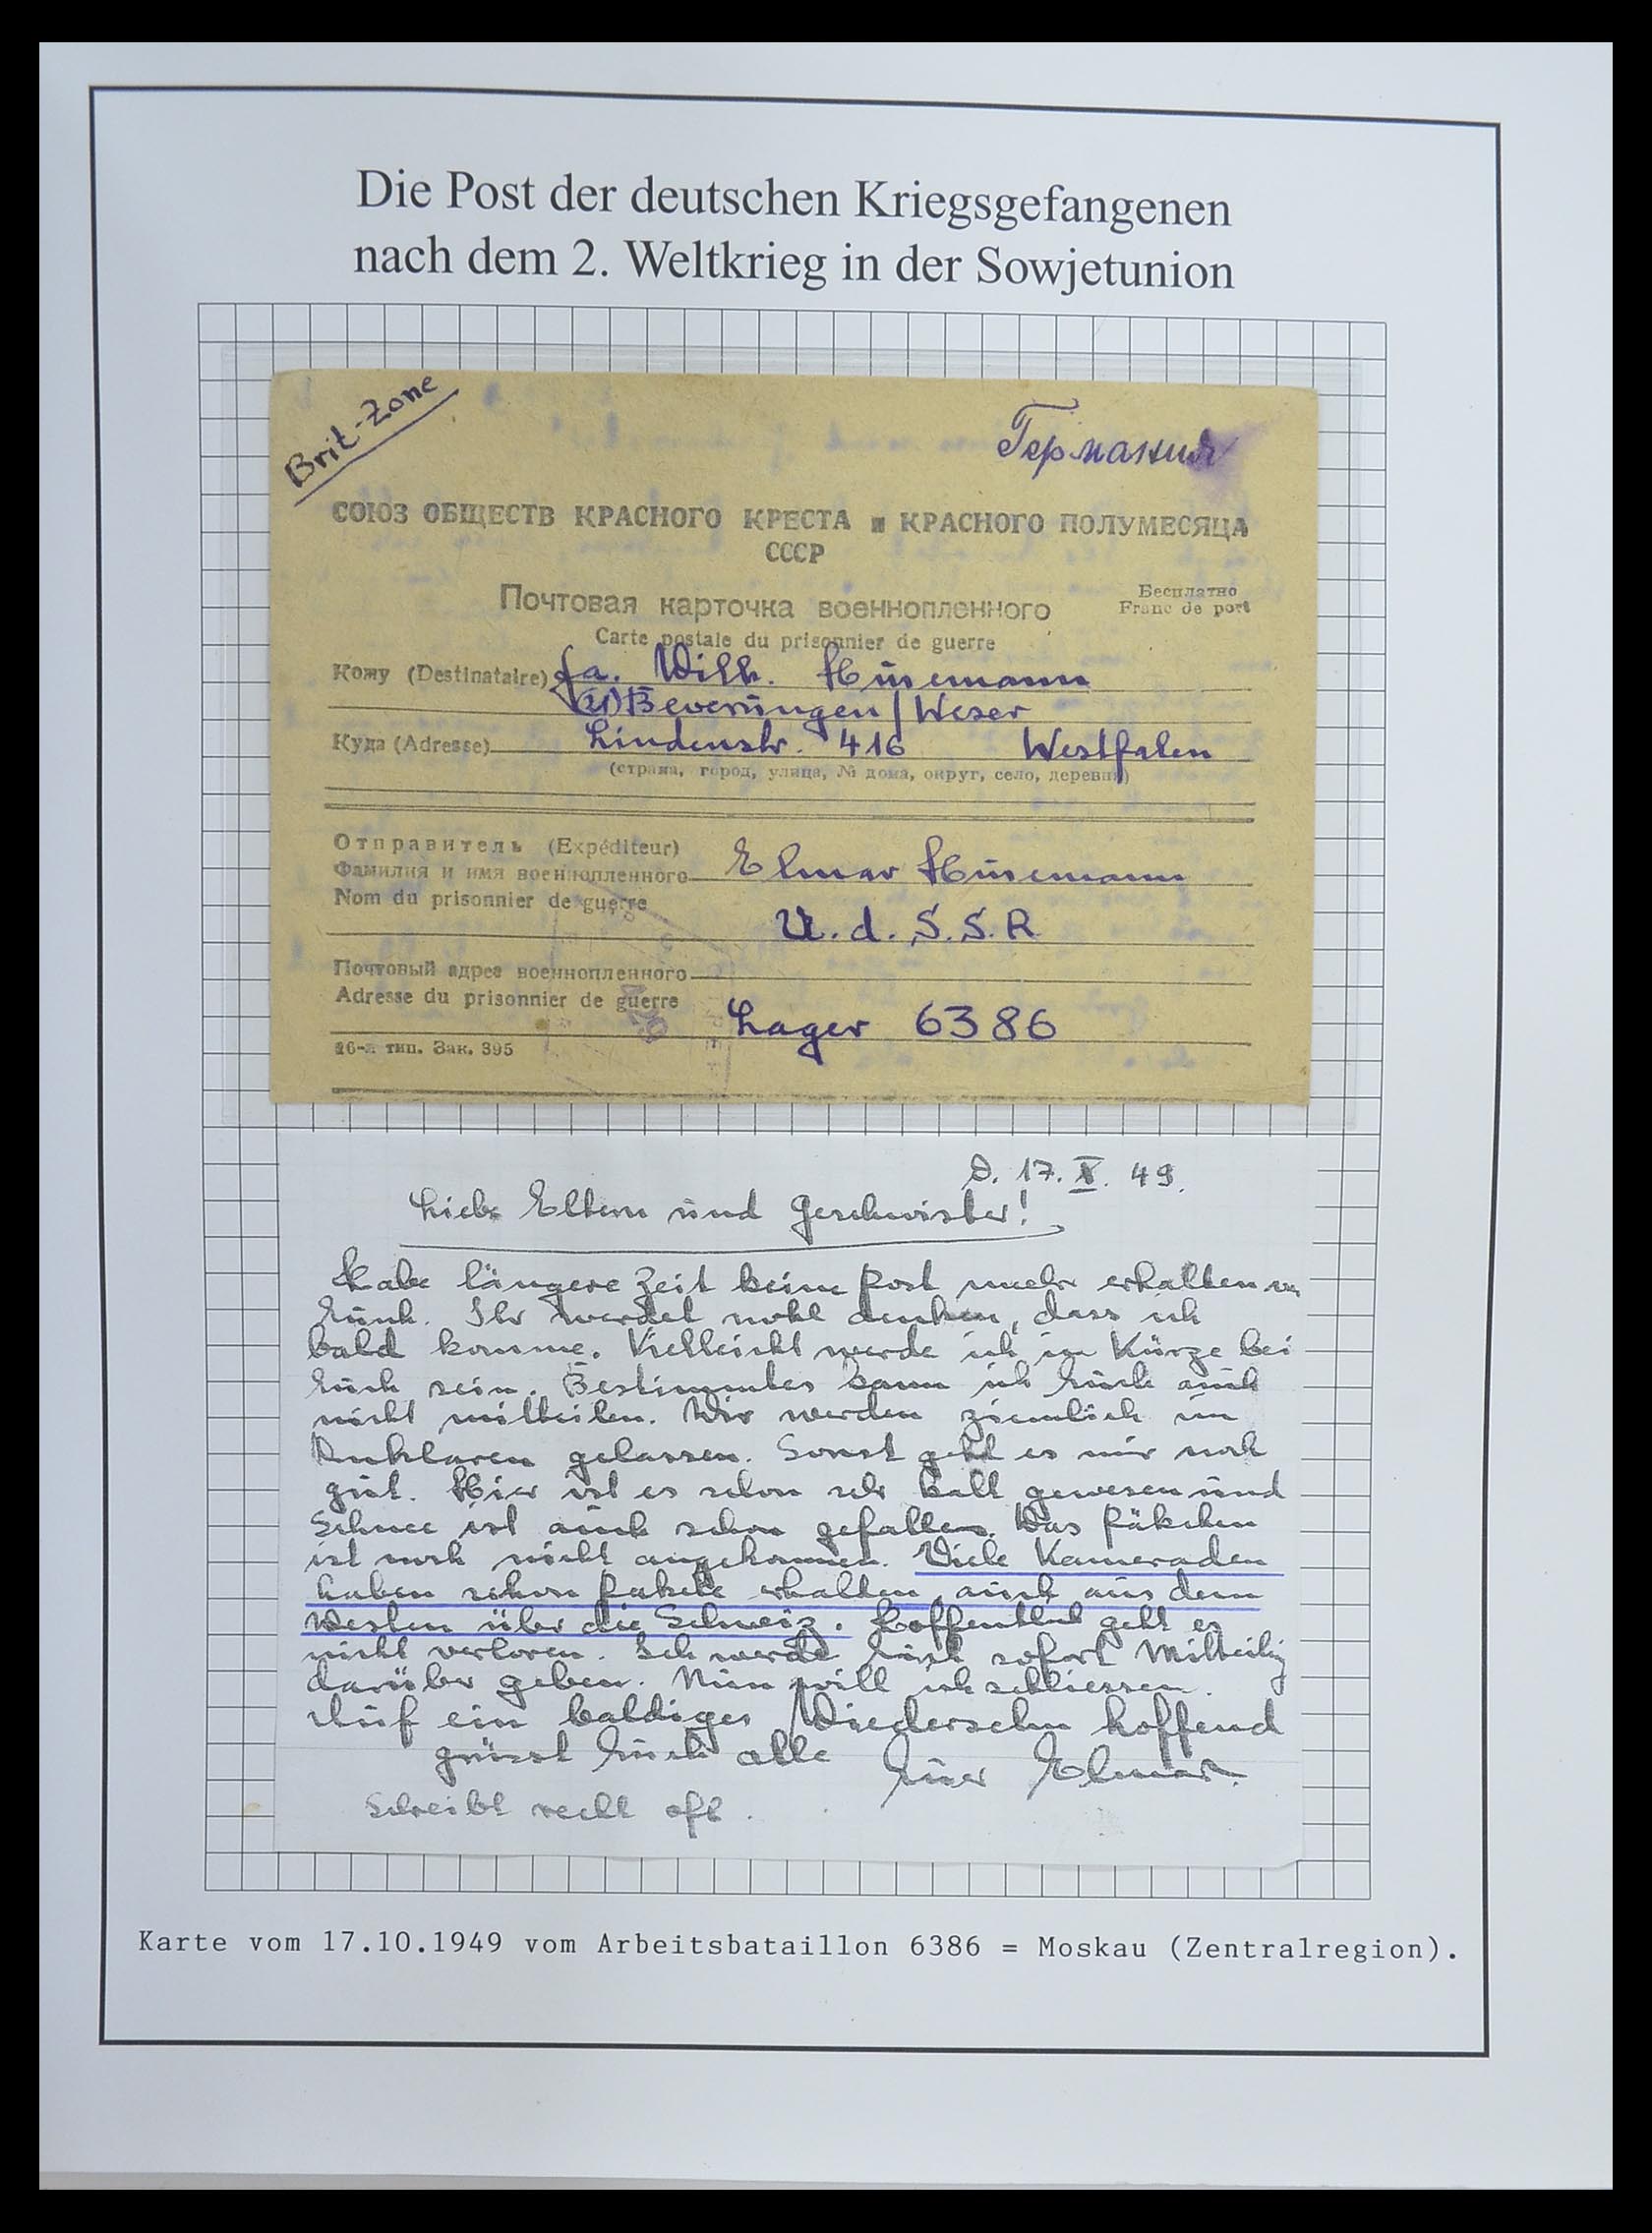 Die Post der deutschen Kriegsgefangenen
nach dem 2. Weltkrieg in der Sowjetunion
Brit-Zone
Германия
СОЮЗ ОБЩЕСТВ КРАСНОГО КРЕСТА и КРАСНОГО ПОЛУМЕСЯЦА
СССР
Почтовая карточка военнопленного
Бесплатно
Franc de port
Carte postale du prisonnier de guerre
Кому (Destinataire) Fa. Wilh. Hüsemann
(21) Beverungen / Weser
Куда (Adresse) Lindenstr. 416 Westfalen
(страна, город, улица, № дома, округ, село, деревня)
Отправитель (Expéditeur)
Фамилия и имя военнопленного Elmar Hüsemann
Nom du prisonnier de guerre
U.d.S.S.R
Почтовый адрес военнопленного
Adresse du prisonnier de guerre
Lager 6386
16-я тип. Зак. 395
D. 17. X. 49.
Liebe Eltern und Geschwister!
Habe längere Zeit keine Post mehr erhalten von
Euch. Ihr werdet wohl denken, dass ich
bald komme. Vielleicht werde ich in Kürze bei
Euch sein. Bestimmtes kann ich Euch auch
nicht mitteilen. Wir werden ziemlich im
Unklaren gelassen. Sonst geht es mir noch
gut. Hier ist es schon sehr kalt gewesen und
Schnee ist auch schon gefallen. Das Päkchen
ist noch nicht angekommen. Viele Kameraden
haben schon Pakete erhalten, auch aus dem
Westen über die Schweiz. Hoffentlich geht es
nicht verloren. Ich werde Euch sofort Mitteilung
darüber geben. Nun will ich schliessen.
Auf ein baldiges Wiedersehn hoffend
grüsst Euch alle Euer Elmar.
Schreibt recht oft.
Karte vom 17.10.1949 vom Arbeitsbataillon 6386 = Moskau (Zentralregion).